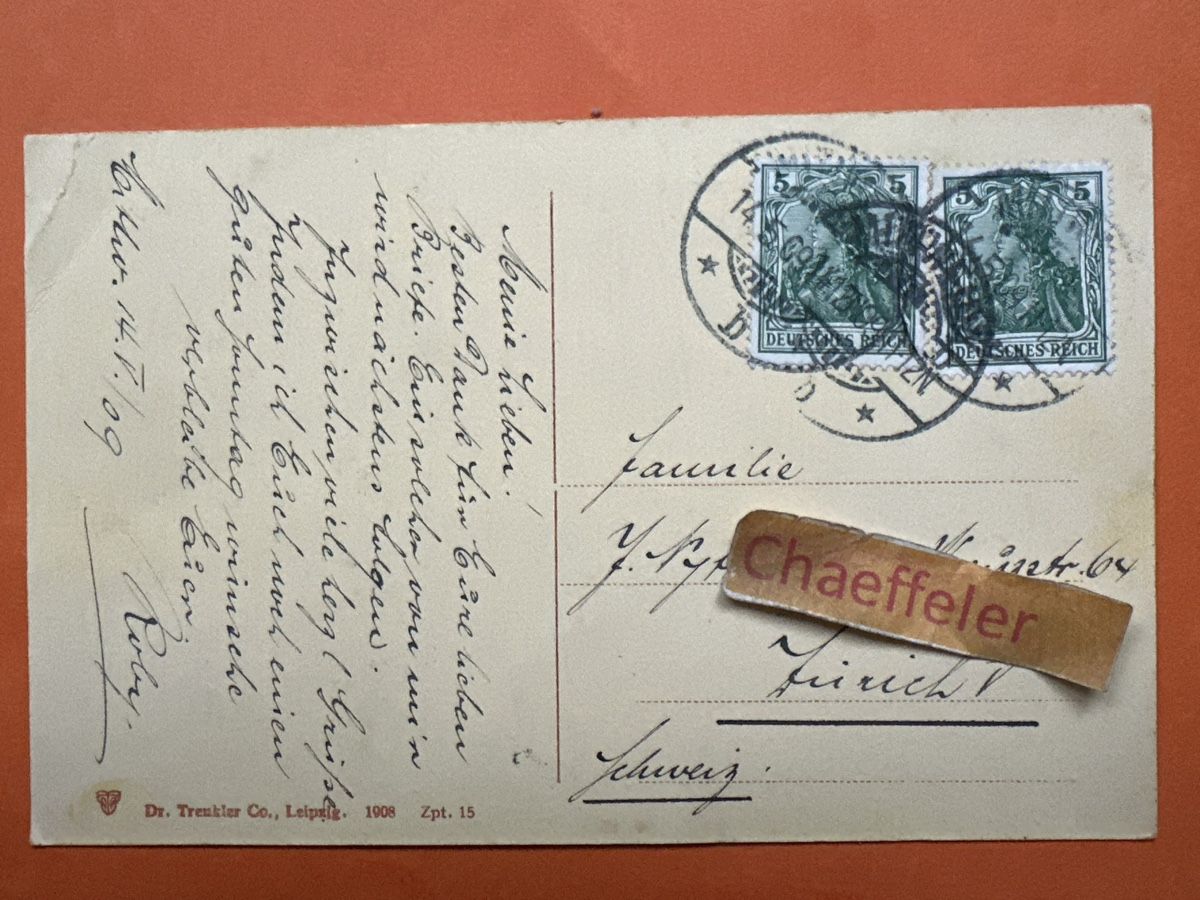 Meine Lieben!
Besten Dank für Eure lieben
Briefe. Ein solcher von mir
wird nächstens folgen.
Inzwischen viele herzl. Grüße
Indem ich Euch noch einen
guten Sonntag wünsche
verbleibe Euer
Roby.
14.V./09
5 5
DEUTSCHES REICH
5 5
DEUTSCHES REICH
Familie
J.
str. 64
Chaeffeler
Zürich V
Schweiz.
Dr. Trenkler Co., Leipzig. 1908 Zpt. 15